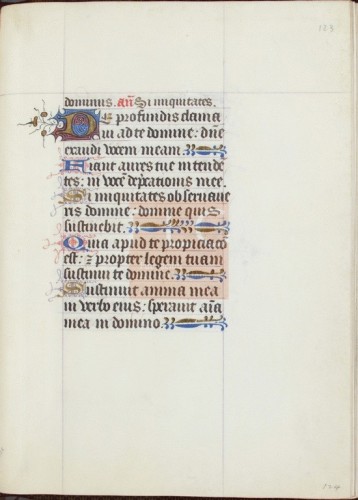 123
dominus. an̄ Si iniquitates.
De profundis clama
ui ad te domine: dn̄e
exaudi vocem meam.
Fiant aures tue intende
tes: in vocē dep̄cationis mee.
Si iniquitates obseruaue
ris domine: domine quis
sustinebit.
Quia apud te propiciatō
est: ⁊ propter legem tuam
sustinui te domine.
Sustinuit anima mea
in verbo eius: sperauit aīa
mea in domino.
124